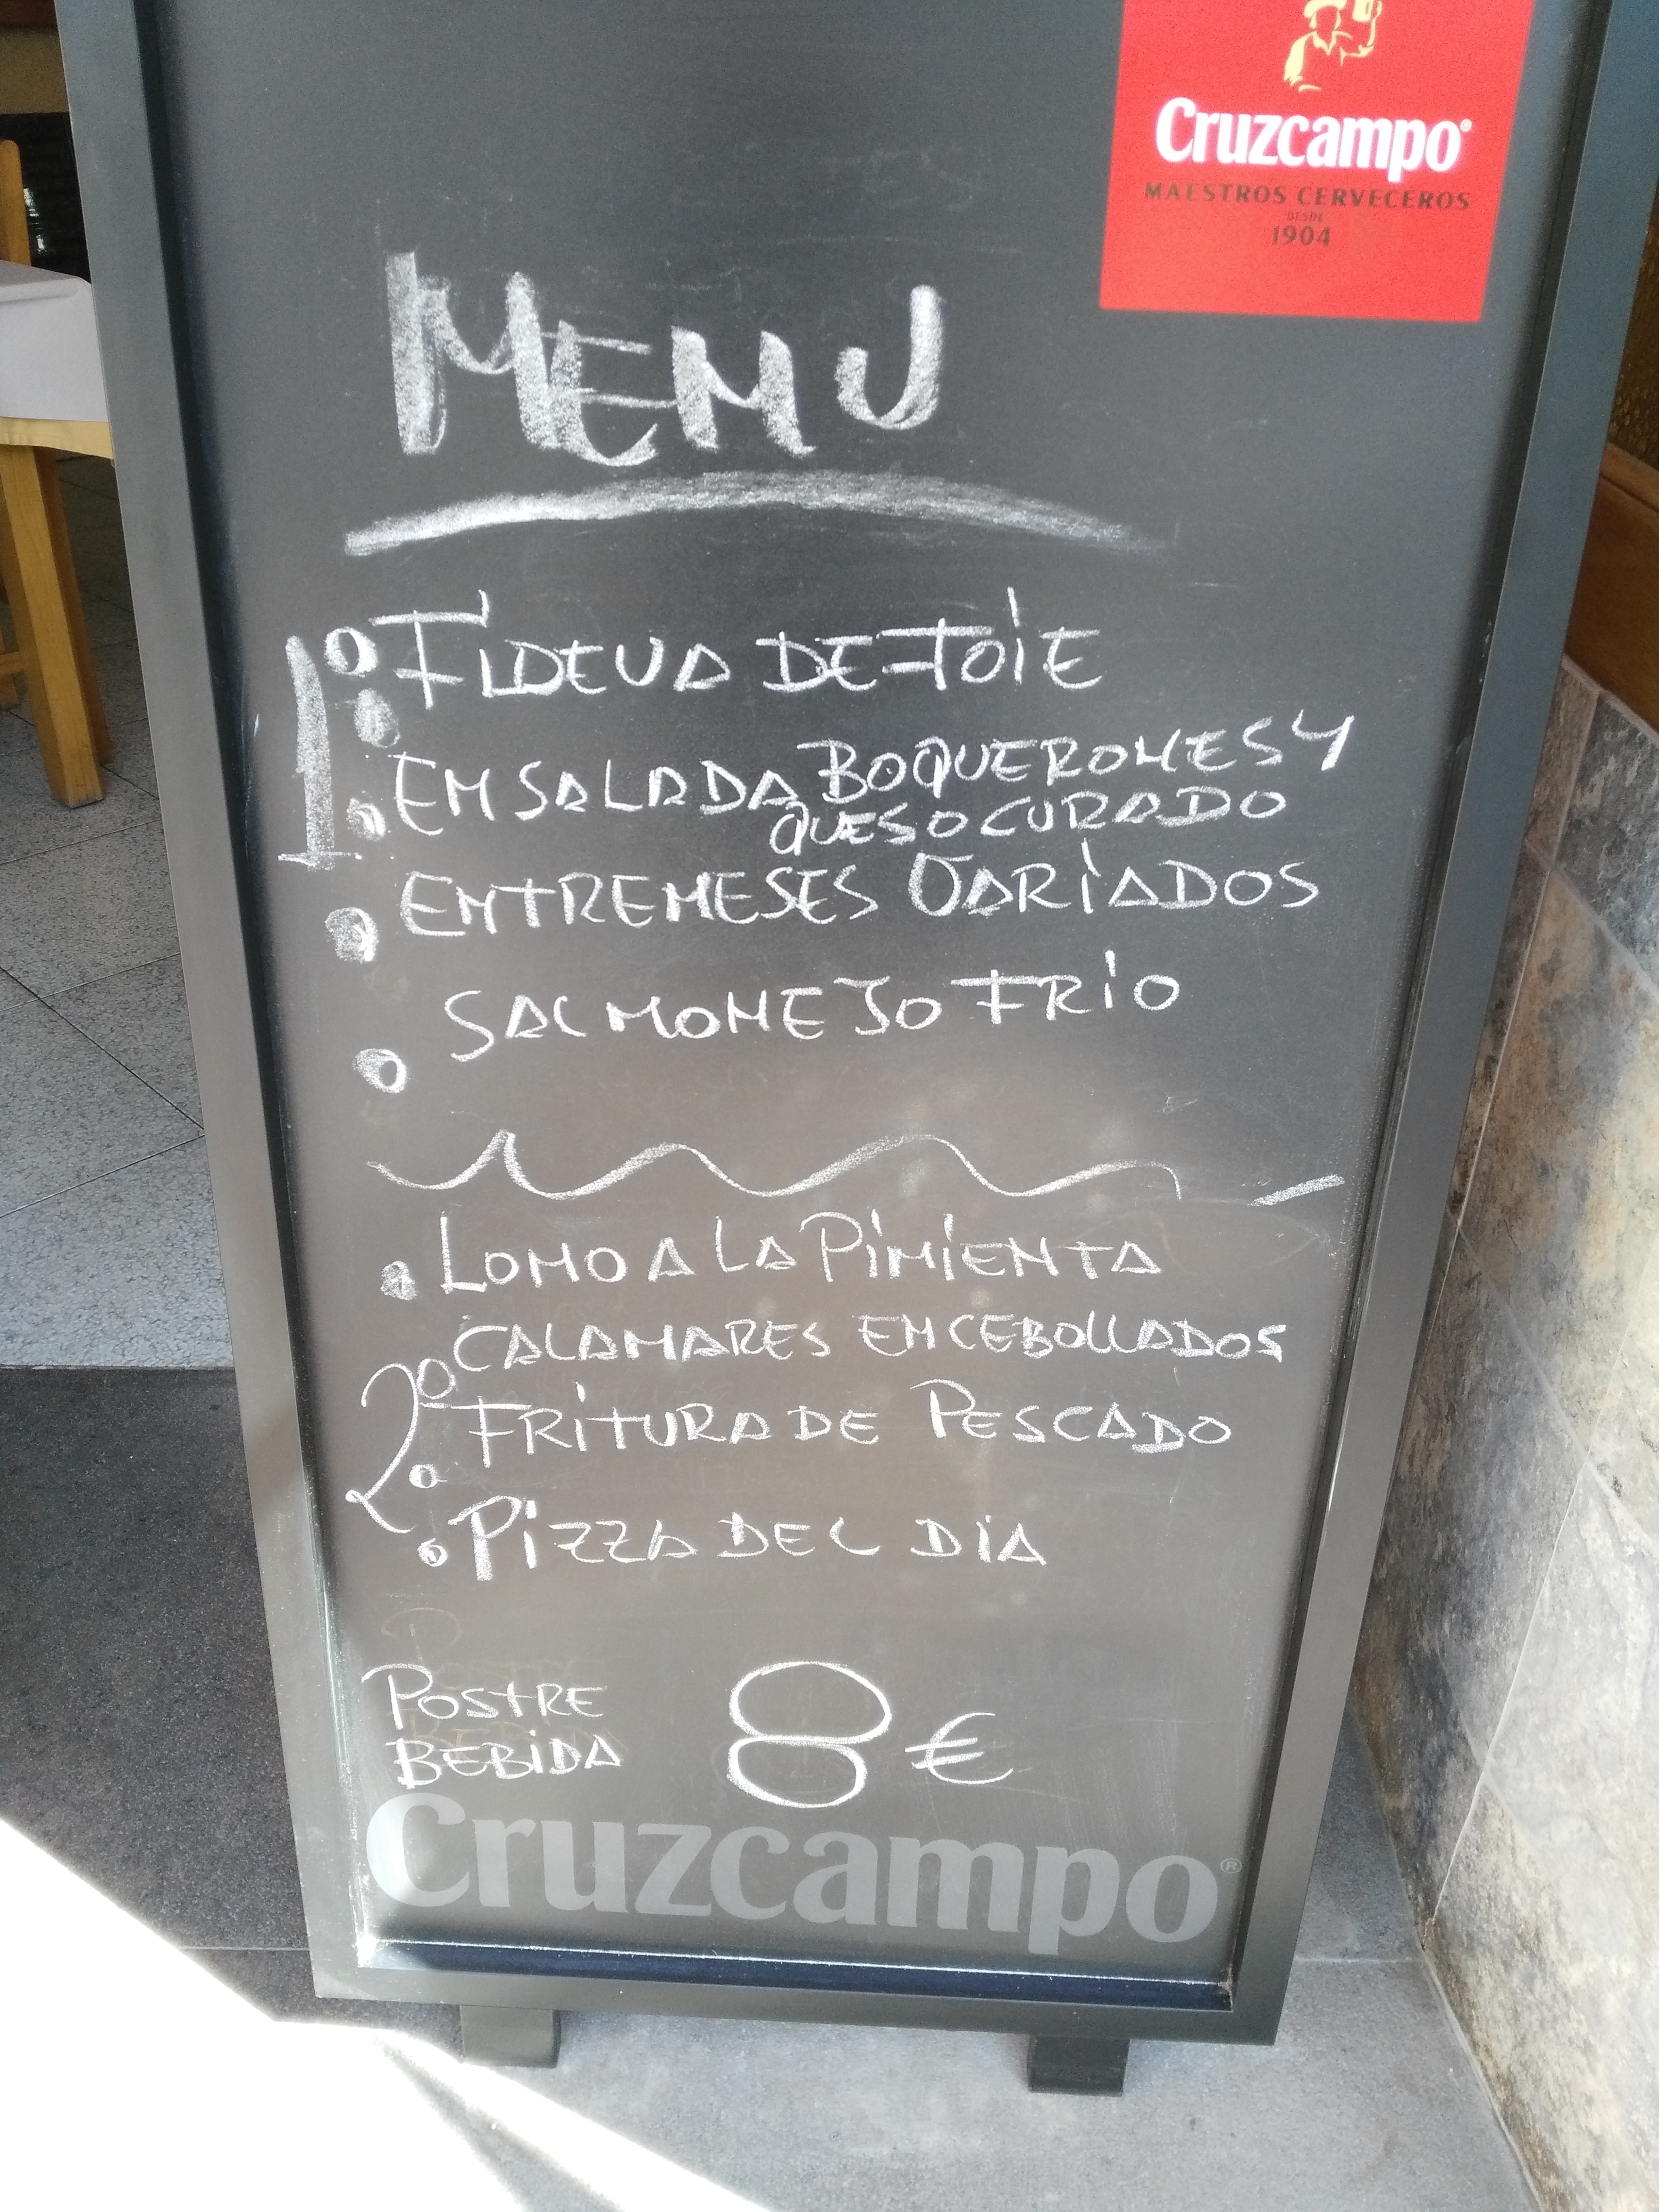 Cruzcampo®
MAESTROS CERVECEROS
DESDE
1904
MENU
1º
FIDEUA DE FOIE
ENSALADA BOQUERONES Y
QUESO CURADO
ENTREMESES VARIADOS
SALMONEJO FRIO
LOMO A LA PIMIENTA
CALAMARES ENCEBOLLADOS
2º
FRITURA DE PESCADO
PIZZA DEL DIA
POSTRE
BEBIDA
8 €
Cruzcampo®